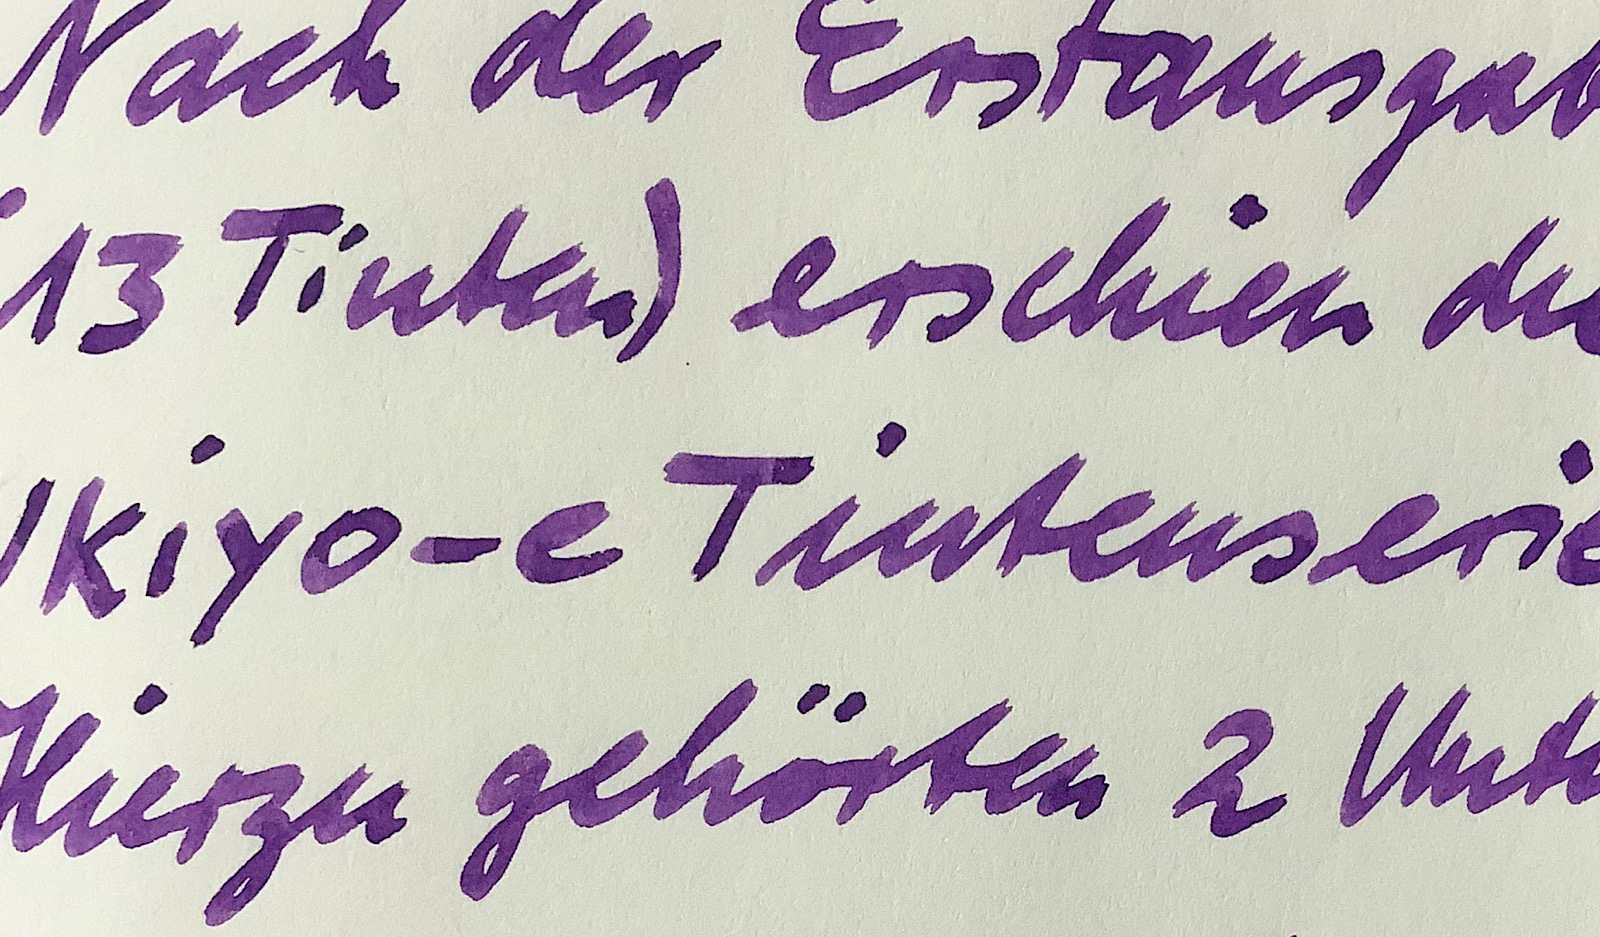 Nach der Erstausgab
13 Tinten) erschien die
Ukiyo-e Tintenserie
Hierzu gehörten 2 Unt